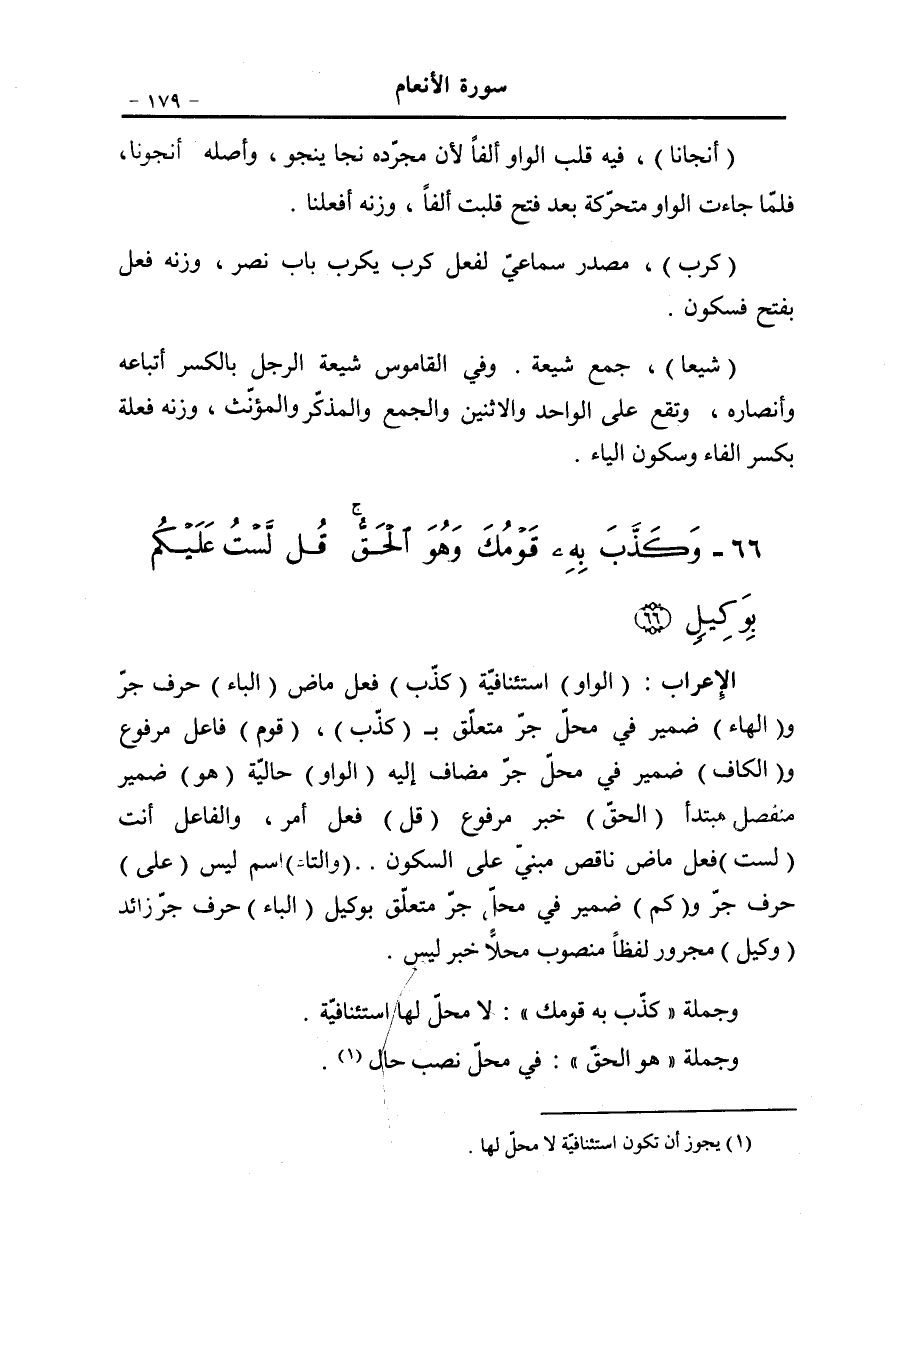 سورة الأنعام
- ١٧٩ -
( أنجانا ) ، فيه قلب الواو ألفاً لأن مجرّده نجا ينجو ، وأصله أنجونا،
فلمّا جاءت الواو متحركة بعد فتح قلبت ألفاً ، وزنه أفعلنا .
( كرب ) ، مصدر سماعيّ لفعل كرب يكرب باب نصر ، وزنه فعل
بفتح فسكون .
( شيعا ) ، جمع شيعة . وفي القاموس شيعة الرجل بالكسر أتباعه
وأنصاره ، وتقع على الواحد والاثنين والجمع والمذكّر والمؤنّث ، وزنه فعلة
بكسر الفاء وسكون الياء .
٦٦ - وَكَذَّبَ بِهِۦ قَوْمُكَ وَهُوَ ٱلْحَقُّ ۚ قُل لَّسْتُ عَلَيْكُم
بِوَكِيلٍ ٦٦
الإعراب : ( الواو ) استئنافيّة ( كذّب ) فعل ماض ( الباء ) حرف جرّ
و( الهاء ) ضمير في محلّ جرّ متعلّق بـ ( كذّب ) ، ( قوم ) فاعل مرفوع
و( الكاف ) ضمير في محلّ جرّ مضاف إليه ( الواو ) حاليّة ( هو ) ضمير
منفصل مبتدأ ( الحقّ ) خبر مرفوع ( قل ) فعل أمر ، والفاعل أنت
( لست )فعل ماض ناقص مبنيّ على السكون . . (والتاء)اسم ليس ( على )
حرف جرّ و( كم ) ضمير في محلّ جرّ متعلّق بوكيل ( الباء ) حرف جرّ زائد
( وكيل ) مجرور لفظاً منصوب محلًّا خبر ليس .
وجملة « كذّب به قومك » : لا محلّ لها استئنافيّة .
وجملة « هو الحقّ » : في محلّ نصب حال (١) .
(١) يجوز أن تكون استئنافيّة لا محلّ لها .